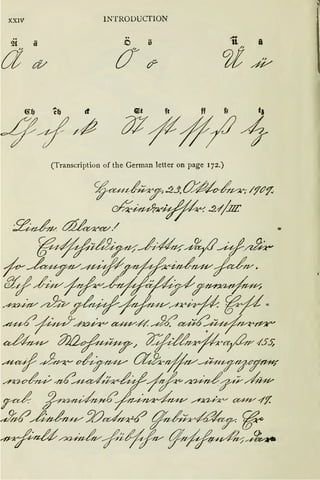 xxiv INTRODUCTION
Ä ä Ö ö Ü ü
Ä ä Ö ö Ü ü
Ch ch ck St st ss ß tz
Ch ch ck St st ss ß tz
(Transcription of the German letter on page 172.)
Hamburg, 23. Oktober, 1909.
Friedrichstr. 21/III.
Liebe Klara!
Entschuldige, bitte, daß ich dir
so lange nicht geschrieben habe.
Ich bin sehr beschäftigt gewesen,
wie du gleich sehen wirst. Erst-
ens sind wir am 11. ds. aus unserer
alten Wohnung, Schillerstraße 155,
nach der obigen Adresse umgezogen,
wobei es natürlich sehr viel zu tun
gab. Zweitens feierten wir am 19.
des lieben Vaters Geburtstag. Er
erhielt viele hübsche Geschenke, dar-